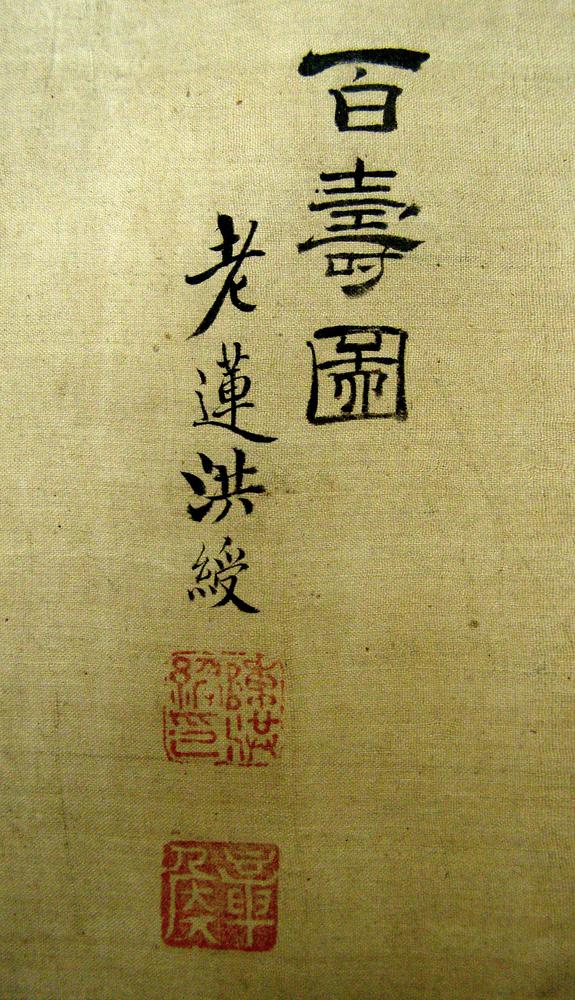 百壽圖
老蓮洪綬
陳洪綬印
章侯